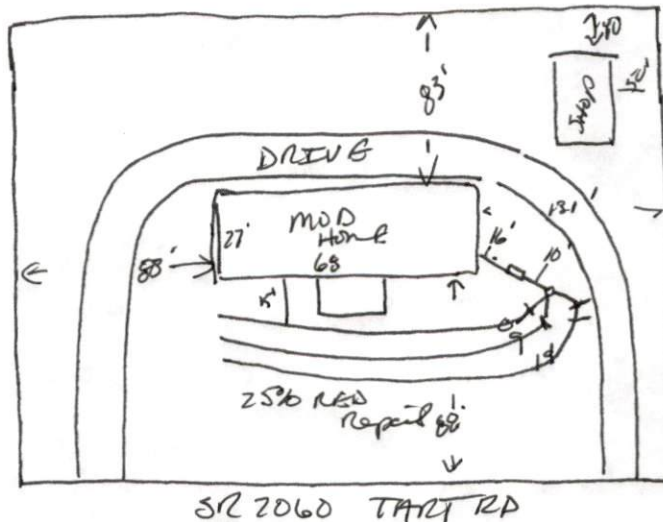 83'
SHOP
DRIVE
27'
MOD
Home
68
88'
16'
10'
131'
25% RED
Repair 88'
SR 2060 TART RD